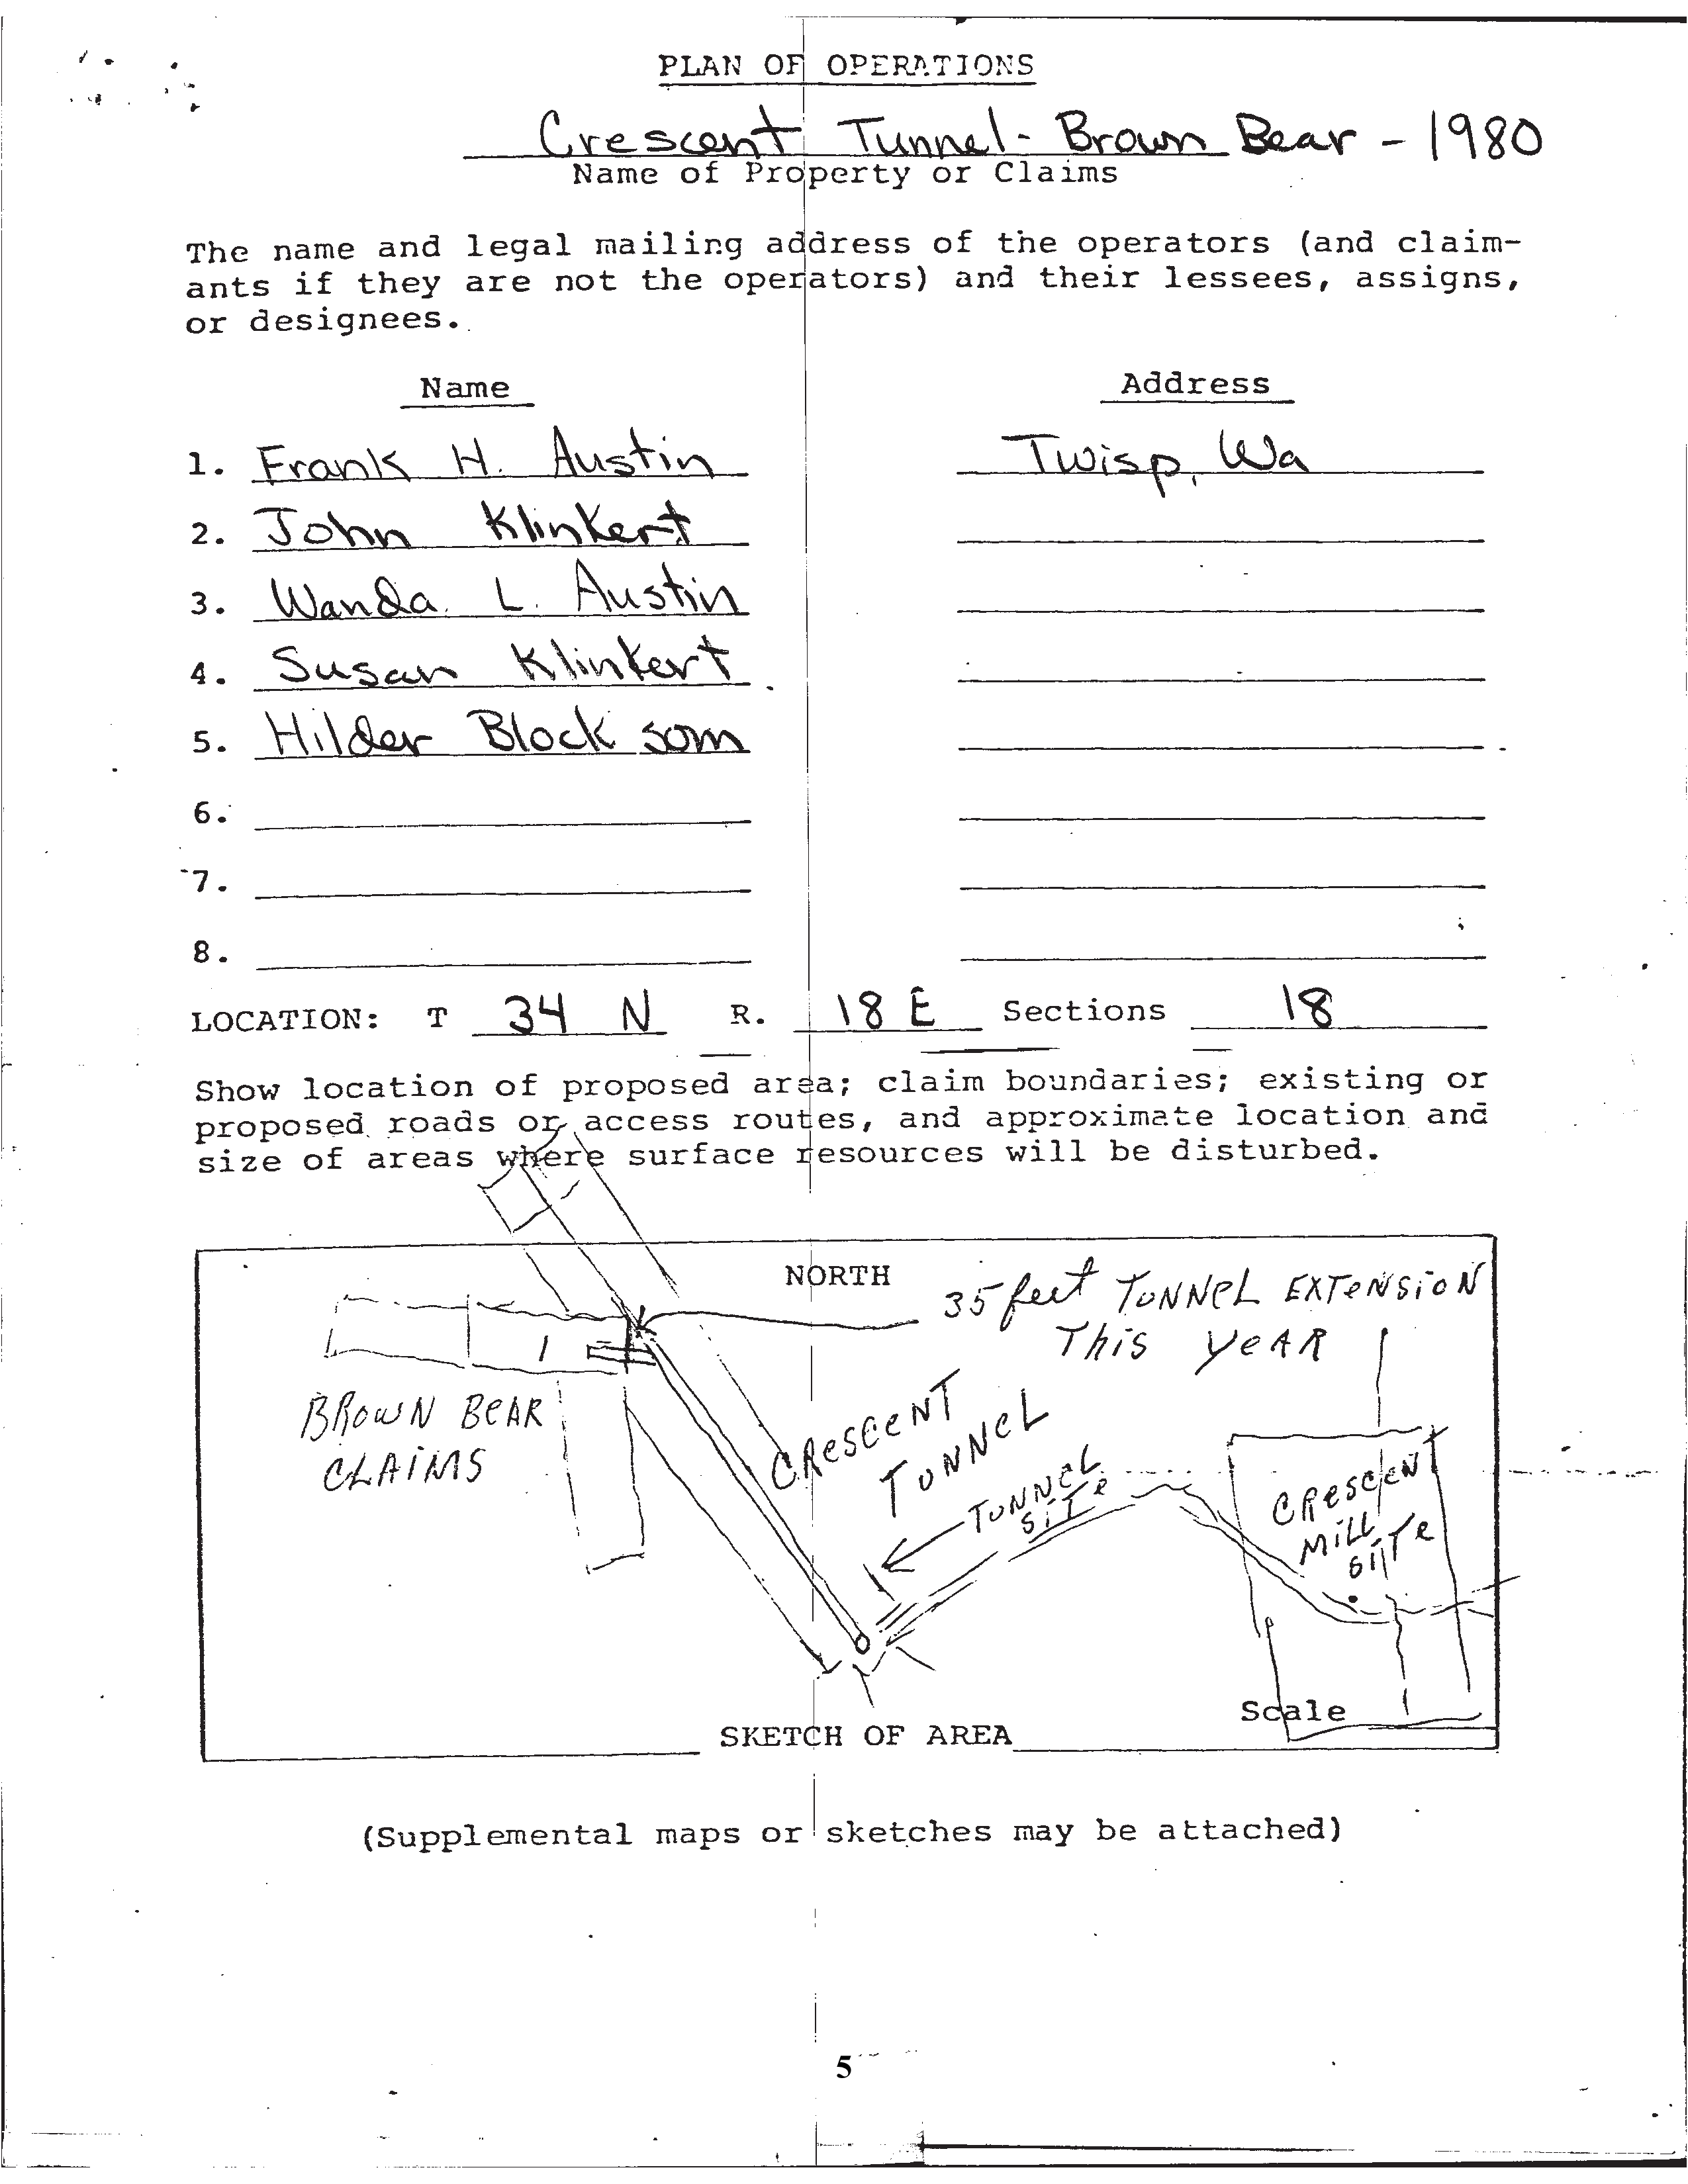 PLAN OF OPERATIONS
Crescent Tunnel - Brown Bear - 1980
Name of Property or Claims
The name and legal mailing address of the operators (and claim-
ants if they are not the operators) and their lessees, assigns,
or designees.
Name Address
1. Frank H. Austin Twisp, Wa
2. John Klinkert
3. Wanda L. Austin
4. Susan Klinkert
5. Hilder Block som
6.
7.
8.
LOCATION: T 34 N R. 18 E Sections 18
Show location of proposed area; claim boundaries; existing or
proposed roads or access routes, and approximate location and
size of areas where surface resources will be disturbed.
NORTH
35 feet TUNNEL EXTENSION
This YEAR
1
BROWN BEAR
CLAIMS
CRESCENT
TUNNEL
TUNNEL
SITE
CRESCENT
MILL
SITE
Scale
SKETCH OF AREA
(Supplemental maps or sketches may be attached)
5